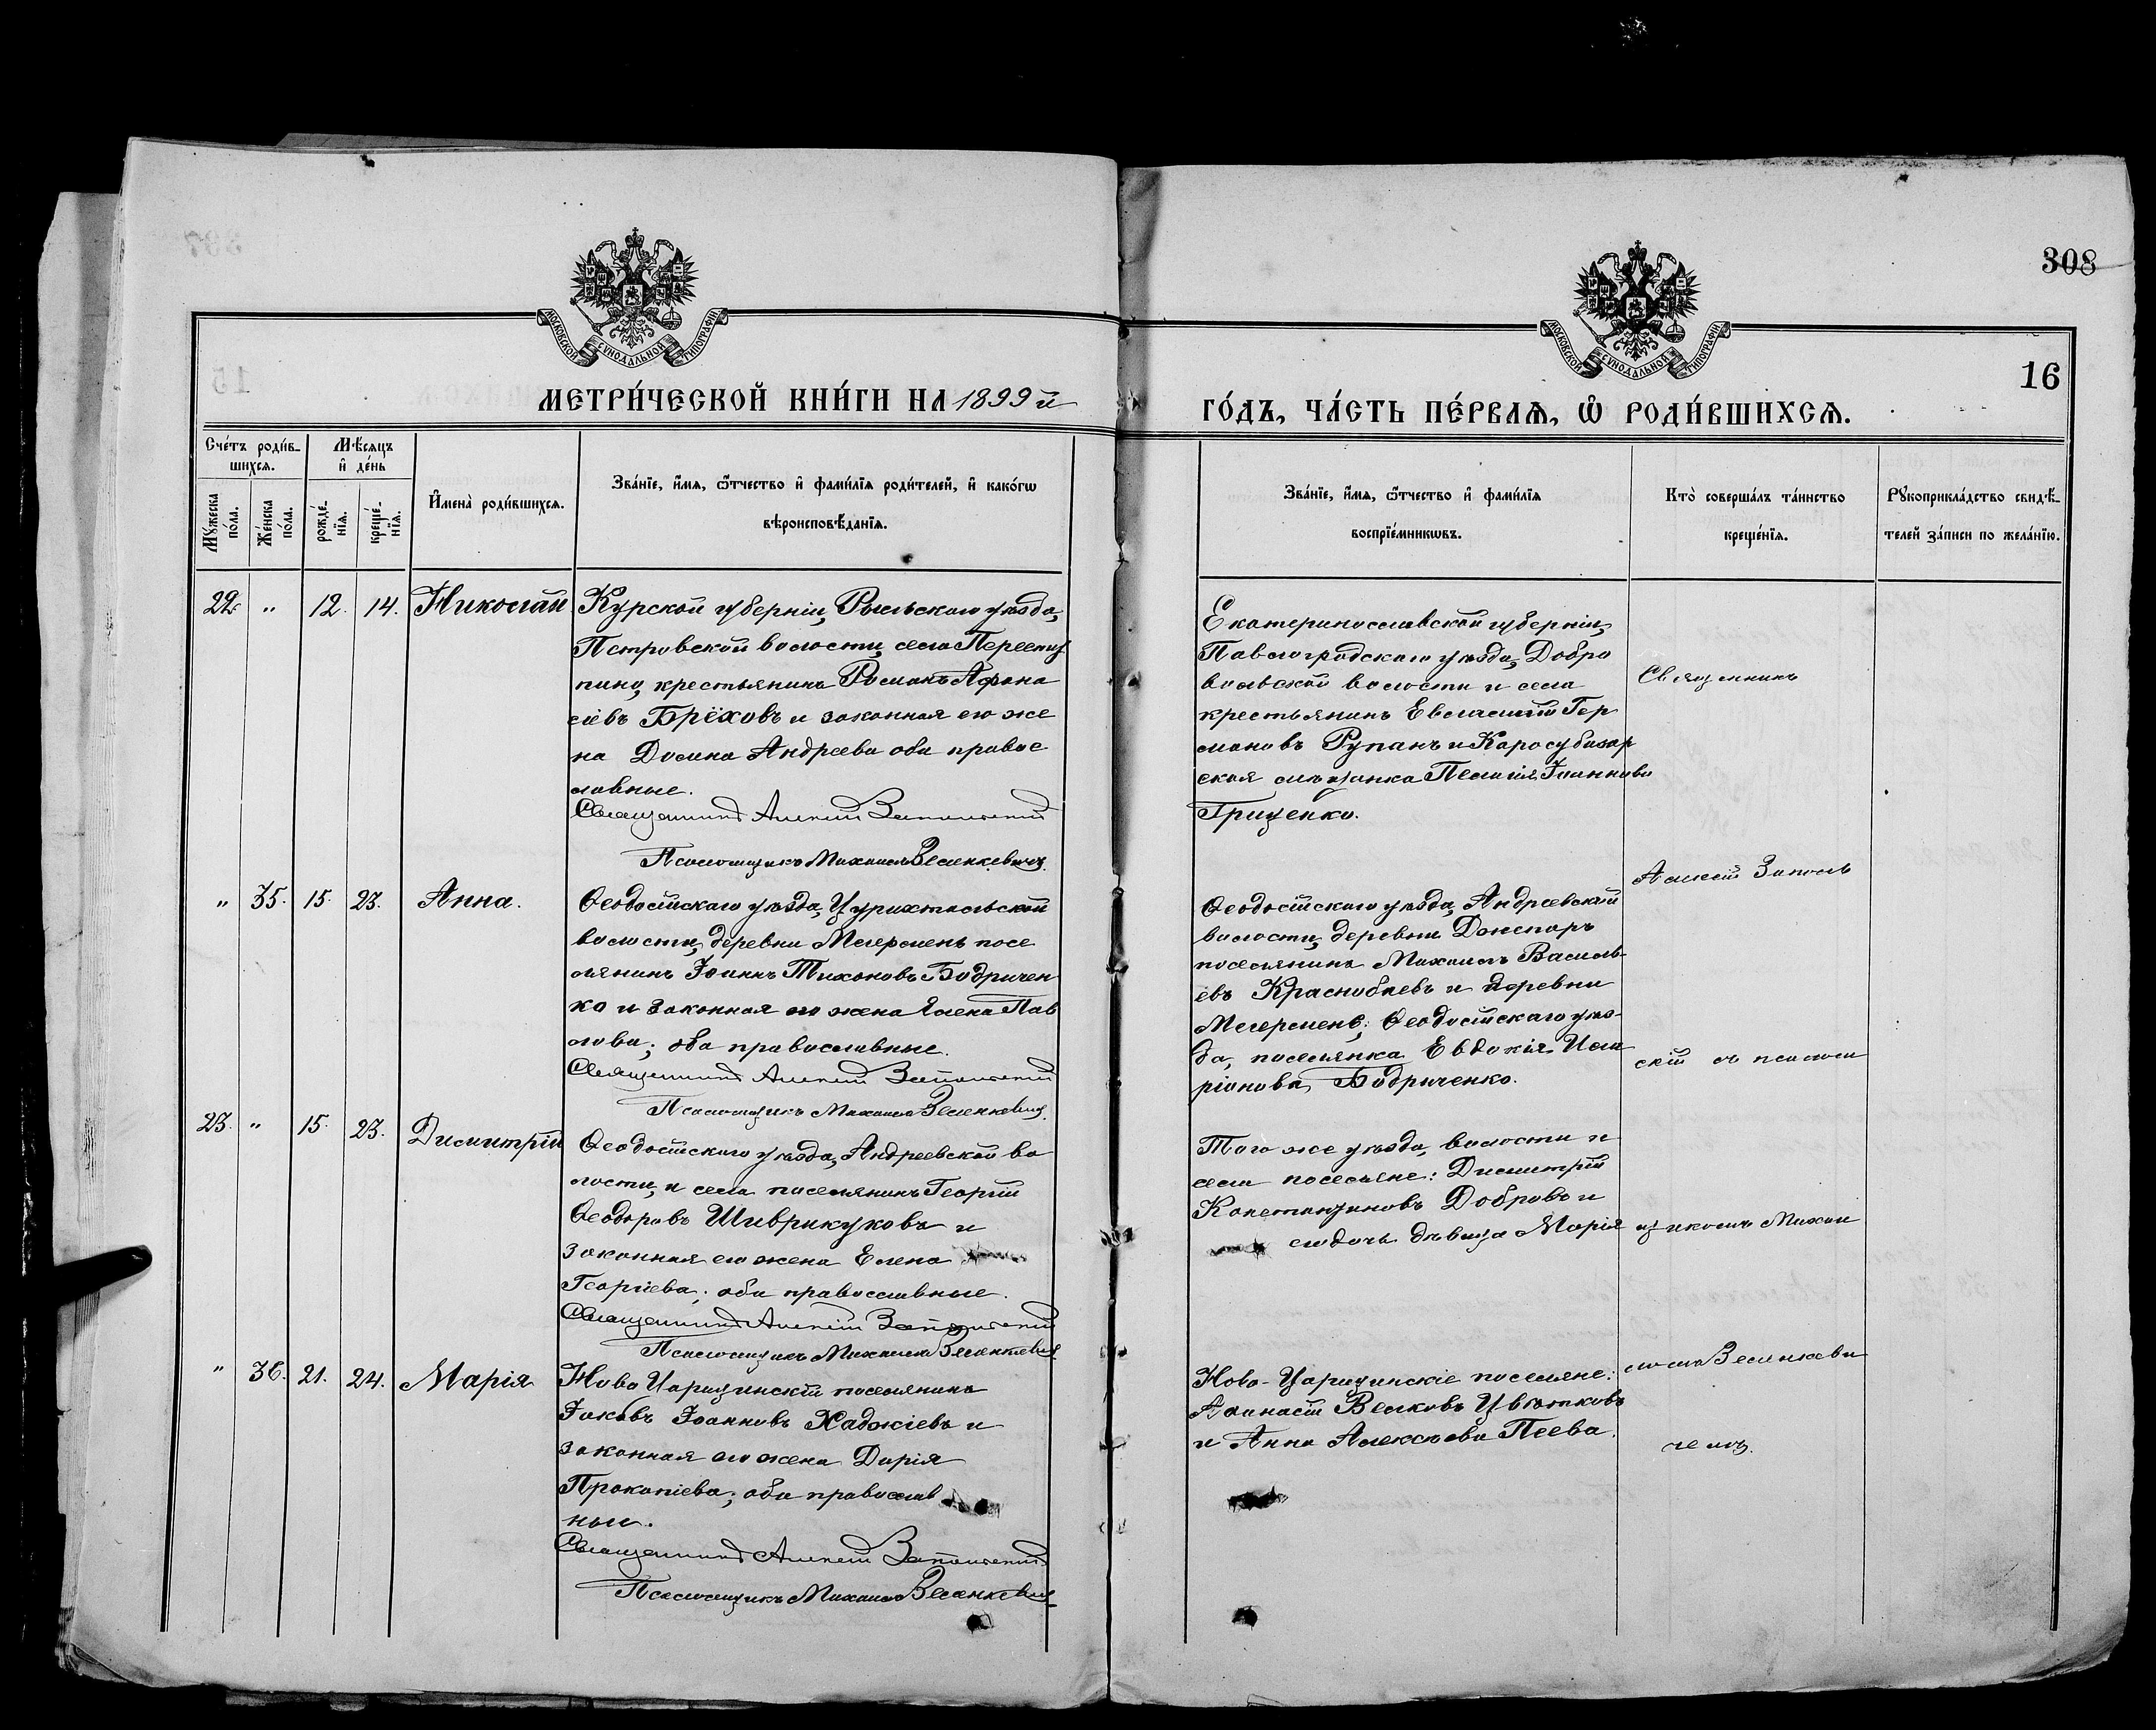 308
МОСКОВСКОЙ СѴНОДАЛЬНОЙ ТИПОГРАФІИ
МОСКОВСКОЙ СѴНОДАЛЬНОЙ ТИПОГРАФІИ
16
МЕТРИ́ЧЕСКОЙ КНИ́ГИ НА 1899 й
ГО́ДЪ, ЧА́СТЬ ПЕ́РВАѦ, Ѡ҆ РОДИ́ВШИХСѦ.
Сче́тъ роди́в-
шихсѧ.
Мѣ́сѧцъ
и҆ де́нь
Мꙋжеска по́ла.
Же́нска по́ла.
рожде́-
нїѧ.
креще́-
нїѧ.
И҆мена̀ роди́вшихсѧ.
Зва́нїе, и҆́мѧ, ѻ҆́тчество и҆ фами́лїѧ роди́телей, и҆ како́гѡ
вѣроисповѣ́данїѧ.
Зва́нїе, и҆́мѧ, ѻ҆́тчество и҆ фами́лїѧ
воспрїе́мникѡвъ.
Кто̀ соверша́лъ та́инство
креще́нїѧ.
Рꙋкоприкла́дство свидѣ́-
телей за́писи по жела́нїю.
22. " 12. 14. Николай
Курской губерніи, Рыльскаго уѣзда,
Петровской волости, села
крестьянинъ Романъ Афана
сіевъ Брёховъ и законная его же
на Домна Андреева оба правос
лавные.
Священникъ Алексій Запольскій
Псаломщикъ Михаилъ Зеленкевичъ
Екатеринославской губерніи,
Павлоградскаго уѣзда, Добро
вольской волости и села
крестьянинъ Евлампій Гер
мановъ Рупанъ и Карасубазар
ская мѣщанка Пелагія Іоаннова
Гриценко.
" 35. 15. 23. Анна.
Ѳеодосійскаго уѣзда, Цурихтальской
волости, деревни Мегермень посе
лянинъ Іоаннъ Тихоновъ Бодричен
ко и законная его жена Елена Пав
лова; оба православные.
Священникъ Алексій Запольскій
Псаломщикъ Михаилъ Зеленкевичъ
Ѳеодосійскаго уѣзда, Андреевской
волости, деревни
поселянинъ Михаилъ Василь-
евъ Краснобаевъ и деревни
Мегермень, Ѳеодосійскаго уѣз-
да, поселянка Евдокія Ила
ріонова Бодриченко.
23. " 15. 23. Димитрій
Ѳеодосійскаго уѣзда, Андреевской во
лости, и села поселянинъ Георгій
Ѳеодоровъ Шиврикуковъ и
законная его жена Елена
Георгіева; оба православные.
Священникъ Алексій Запольскій
Псаломщикъ Михаилъ Зеленкевичъ
Того же уѣзда, волости и
села поселяне: Димитрій
Константиновъ Добровъ и
его дочь дѣвица Марія
" 36. 21. 24. Марія
Ново Царицинскій поселянинъ
Іаковъ Іоанновъ Хаджіевъ и
законная его жена Дарія
Прокопіева; оба православ
ные.
Священникъ Алексій Запольскій
Псаломщикъ Михаилъ Зеленкевичъ
Ново-Царицинскіе поселяне:
Аѳанасій Велковъ Цвѣтковъ
и Анна Алексѣева Пеева.
Священникъ
Алексій Заполь
скій съ псалом
щикомъ Михаи
ломъ Зеленкеви
чемъ.